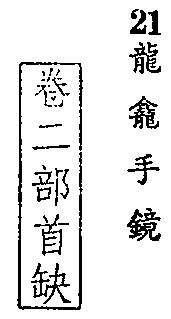 21
龍龕手鏡
卷二部首缺